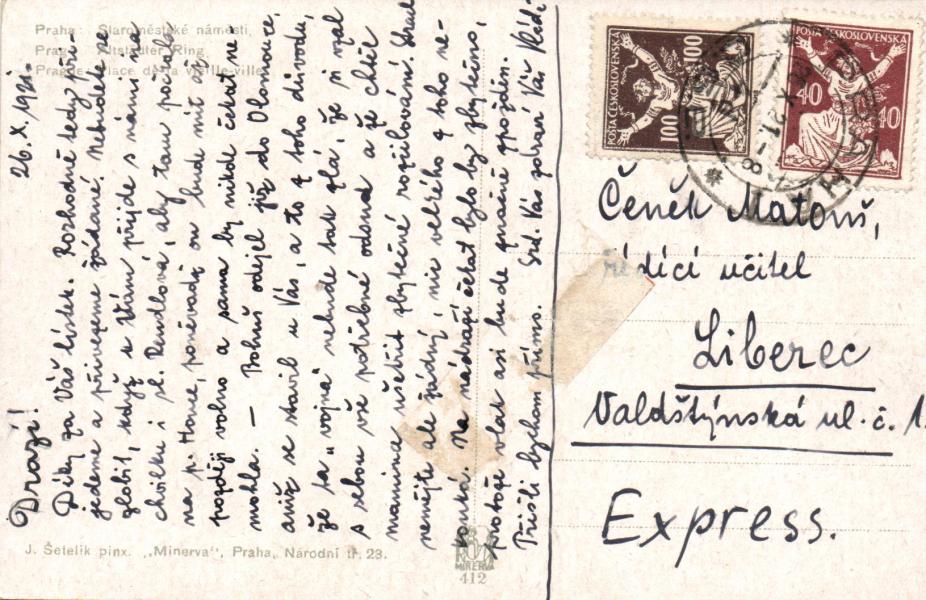 Praha: Staroměstské náměstí.
Prag: Altstädter Ring.
Prague: Place de la vieille ville.
26. X. 1921.
Drazí!
Díky za Váš lístek. Rozhodně tedy při-
jedeme a přivezeme žádané. Nebude to
zlobit, když k Vám přijde s námi na
chvilku i sl. Rendlová, aby tam počkala
na p. Hance, poněvadž on bude mít až
později volno a sama by nikde čekat ne-
mohla. — Bohuš odejel již do Olomouce,
aniž se stavil u Vás, a to z toho důvodu,
že ta „vojna" nebude tak zlá, že si vzal
s sebou vše potřebné odsud a že chtěl
mamince ušetřit zbytečné rozčilování. Strach
nemějte ale žádný, nic velkého z toho ne-
kouká. Na nádraží čekat bylo by zbytečno,
protože vlak asi bude značně zpožděn.
Přišli bychom přímo. Srd. Vás pozdraví Váš Vláďa
POŠTA ČESKOSLOVENSKÁ
100 100
POŠTA ČESKOSLOVENSKÁ
40 40
Čeněk Matouš,
řídící učitel
Liberec
Valdštýnská ul. č. 1.
Express.
J. Šetelík pinx. „Minerva", Praha, Národní tř. 23.
MINERVA
412